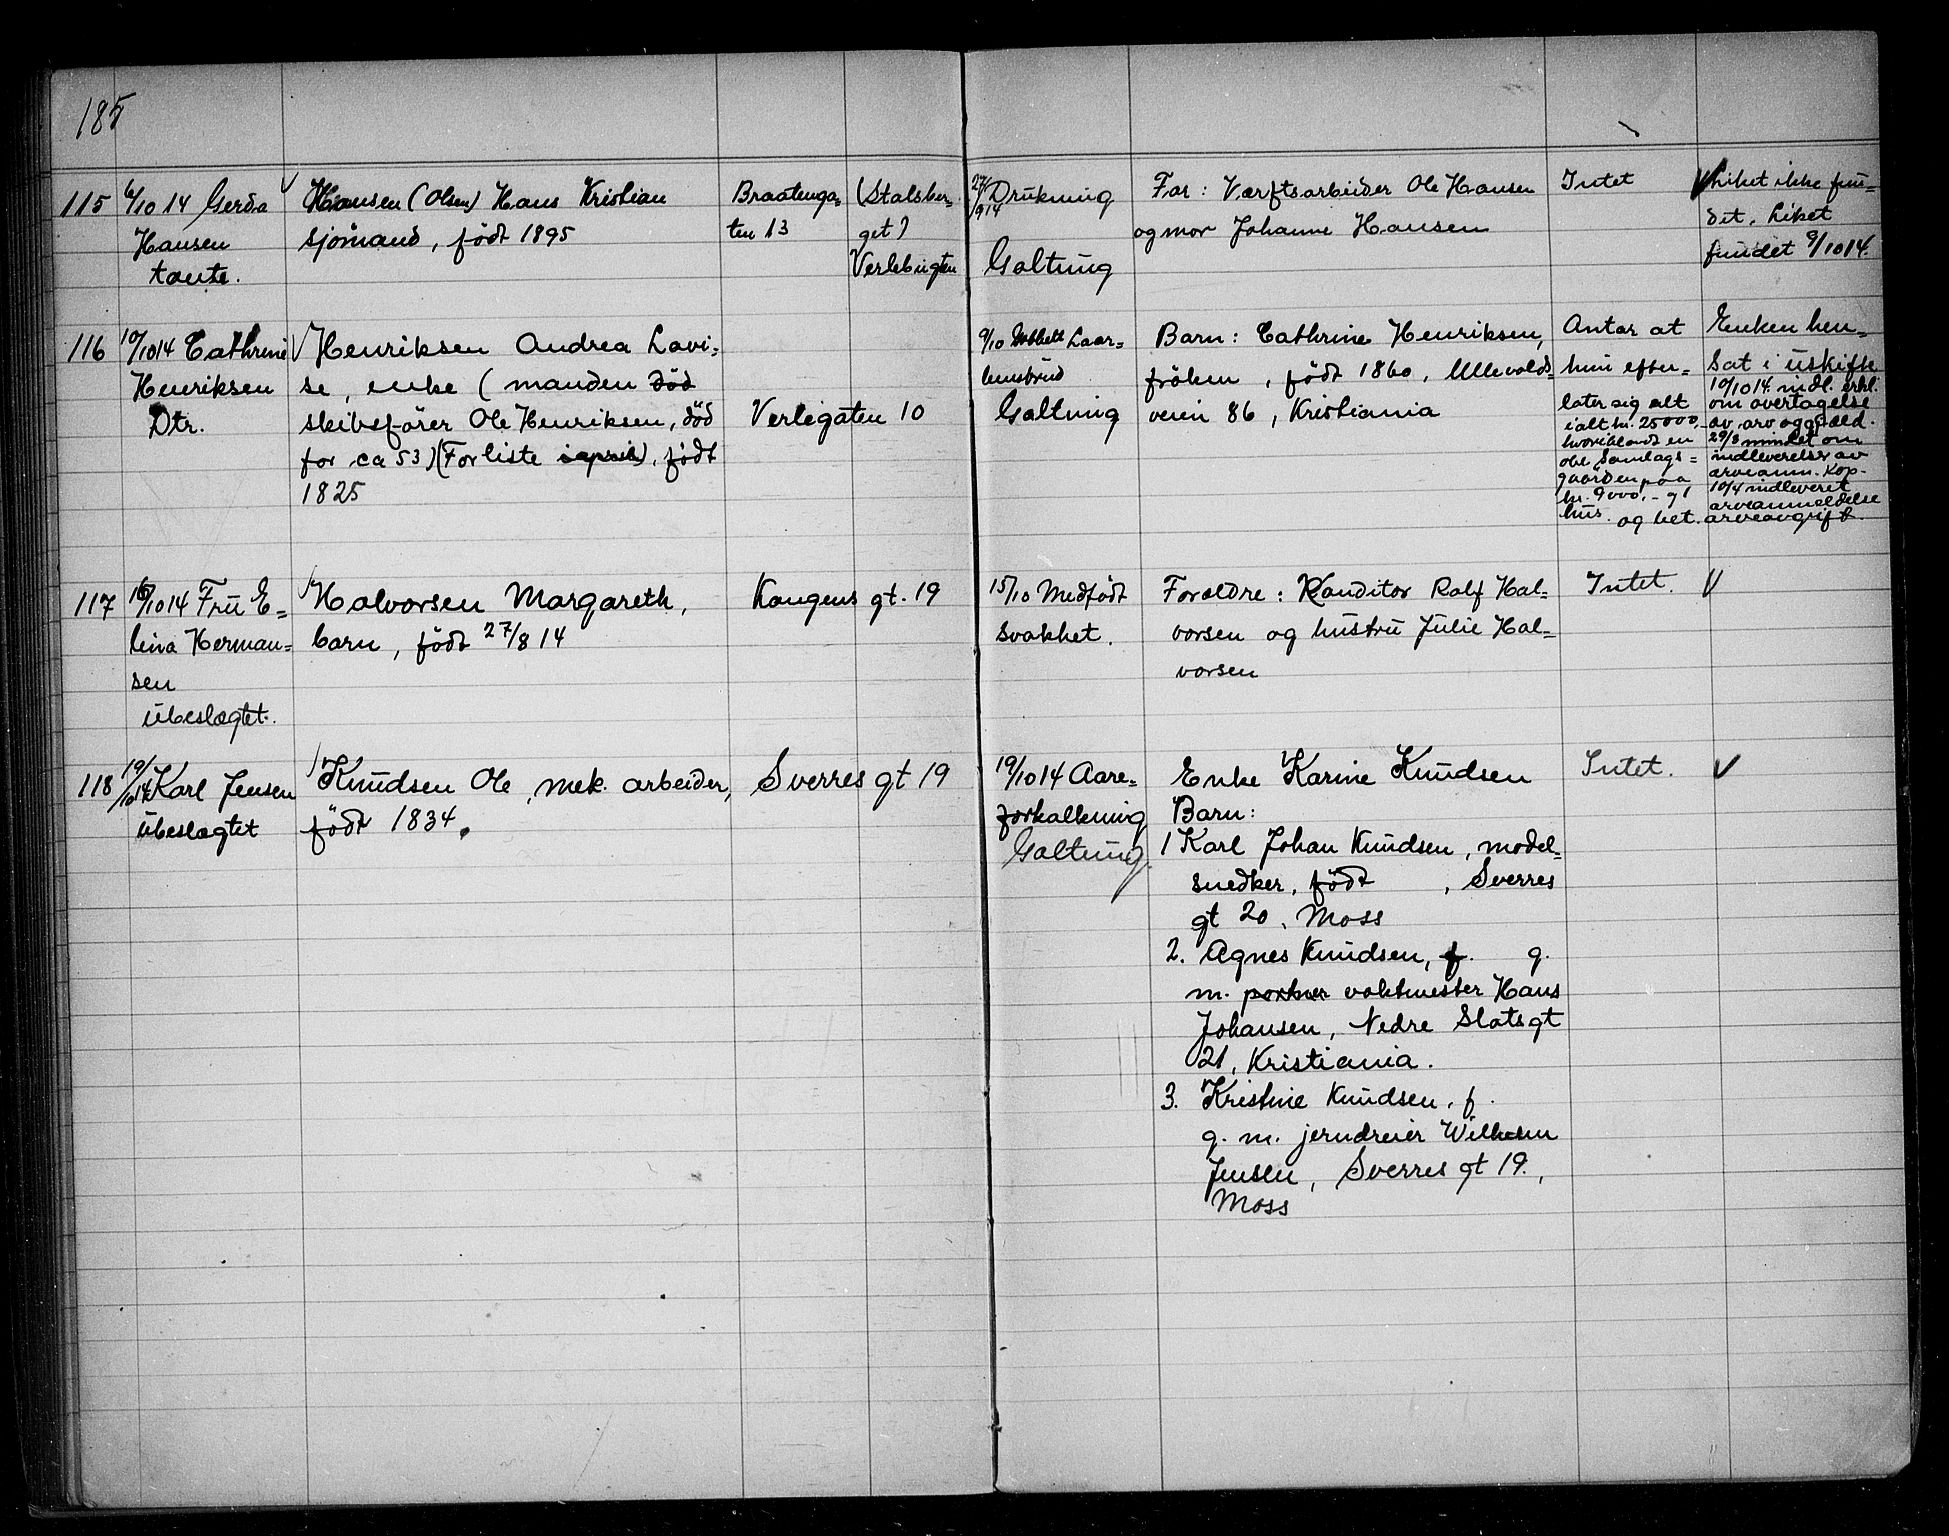 185
115
6/10 14 Gerda
Hansen
tante.
Hansen (Olsen) Hans Kristian
sjømand, født 1895
Braatenga=
ten 13
(Stalsber=
get)
Verlebugten
27/9 14 Drukning
Galtung
Far: Værftsarbeider Ole Hansen
og mor Johanne Hansen
Intet
Liket ikke fun=
det. Liket
fundet 9/10 14.
116
10/10 14 Cathrine
Henriksen
Dtr.
Henriksen Andrea Lovi=
se, enke (manden død
skibsfører Ole Henriksen, død
for ca 53) (Forliste), født
1825
Verlegaten 10
9/10 Laar=
hensbrud
Galtung
Barn: Cathrine Henriksen,
frøken, født 1860, Ullevolds=
veien 86, Kristiania
Antar at
hun efter=
later sig alt
ialt kr. 25000,-
hvoriblandt en
obl. Samlags=
gaarden paa
kr. 9000,- og 1
hus.
Enken hen=
sat i uskifte
10/10 14 mdl. erkl.
om overtagelse
av arv og gjæld.
29/3 mindet om
indleverelse av
arveanm. Kop.
10/4 indleveret
arveanmeldelse
og bet. arveavgift.
117
16/10 14 Fru E=
lina Herman=
sen
ubeslægtet.
Halvorsen Margareth,
barn, født 27/8 14
Kongens gt. 19
15/10 Medfødt
svakhet.
Forældre: Konditor Rolf Hal=
vorsen og hustru Julie Hal=
vorsen
Intet.
118
19/10 14 Karl Jensen
ubeslægtet
Knudsen Ole, mek. arbeider,
født 1834.
Sverres gt 19
19/10 14 Aare=
forkalkning
Galtung.
Enke Karine Knudsen
Barn:
1 Karl Johan Knudsen, model=
snedker, født , Sverres
gt 20, Moss
2. Agnes Knudsen, f. g.
m. portner vaktmester Hans
Johansen, Nedre Slotsgt
21, Kristiania.
3. Kristine Knudsen, f.
g. m. jerndreier Wilhelm
Jensen, Sverres gt 19.,
Moss
Intet.